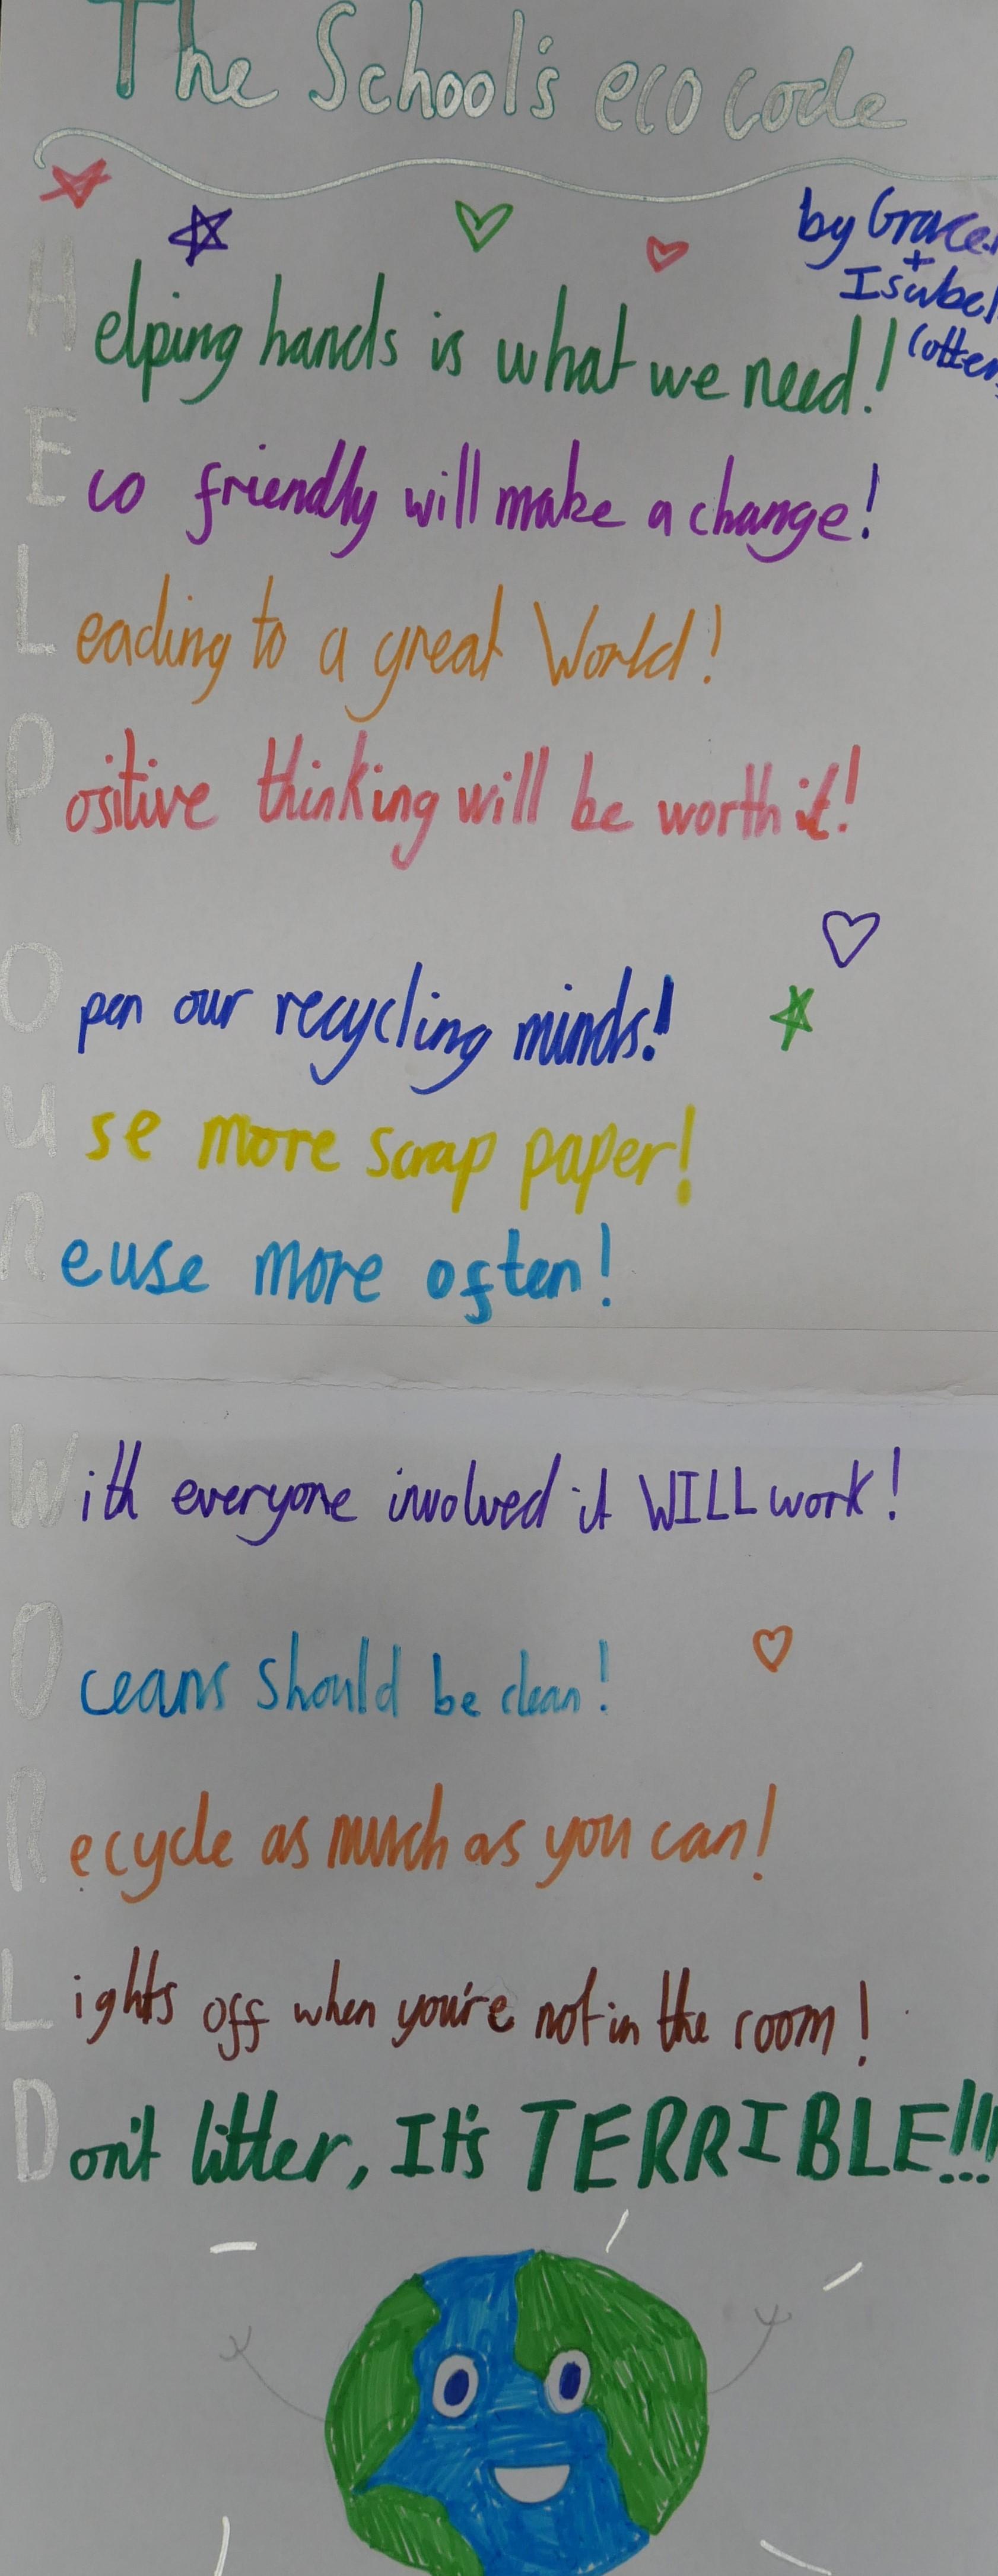 The School's eco code
by Grace
+
Isabel
Helping hands is what we need!
Eco friendly will make a change!
Leading to a great World!
Positive thinking will be worth it!
Open our recycling minds!
Use more scrap paper!
Reuse more often!
With everyone involved it WILL work!
Oceans should be clean!
Recycle as much as you can!
Lights off when you're not in the room!
Don't litter, It's TERRIBLE!!!